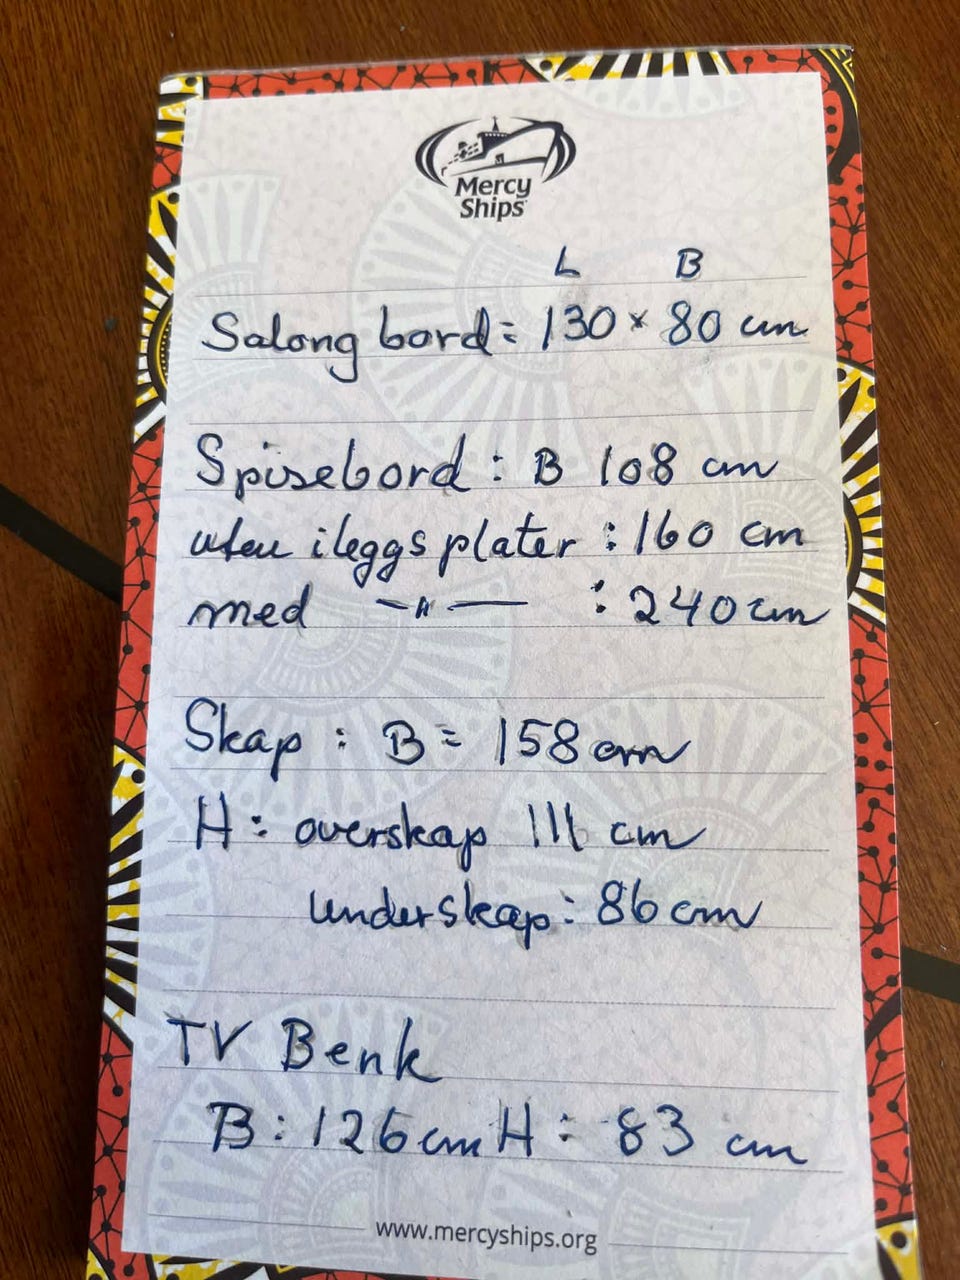 Mercy
Ships
L B
Salong bord = 130 × 80 cm
Spisebord : B 108 cm
uten ileggsplater : 160 cm
med —"— : 240 cm
Skap : B = 158 cm
H : overskap 111 cm
underskap : 86 cm
TV Benk
B : 126 cm H : 83 cm
www.mercyships.org